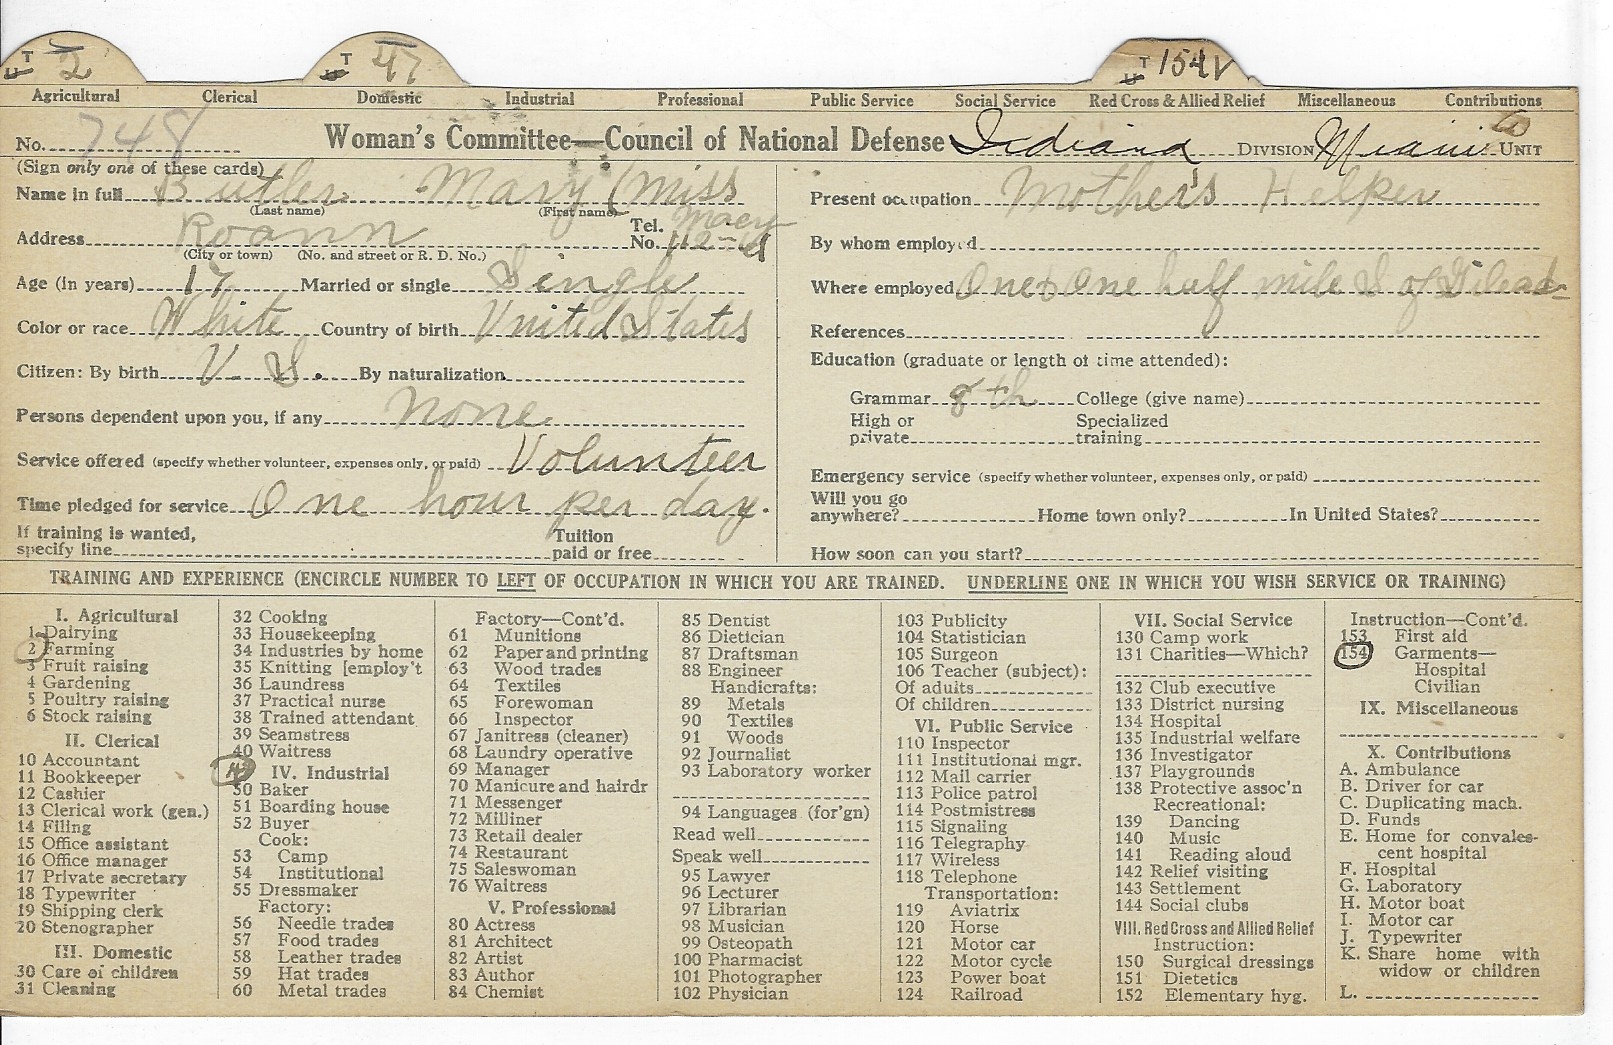 T 2
T 47
T 154V
Agricultural Clerical Domestic Industrial Professional Public Service Social Service Red Cross & Allied Relief Miscellaneous Contributions
No. 748 Woman's Committee—Council of National Defense Indiana DIVISION Miami UNIT
(Sign only one of these cards)
Name in full Butler Mary (Miss
(Last name) (First name)
Address Roann Tel. Macy
No. 112-
(City or town) (No. and street or R. D. No.)
Age (in years) 17 Married or single Single
Color or race White Country of birth United States
Citizen: By birth U. S. By naturalization
Persons dependent upon you, if any None
Service offered (specify whether volunteer, expenses only, or paid) Volunteer
Time pledged for service One hour per day.
If training is wanted, Tuition
specify line paid or free
Present occupation Mother's Helper
By whom employed
Where employed One & One half mile S of Gilead
References
Education (graduate or length of time attended):
Grammar 8th College (give name)
High or Specialized
private training
Emergency service (specify whether volunteer, expenses only, or paid)
Will you go
anywhere? Home town only? In United States?
How soon can you start?
TRAINING AND EXPERIENCE (ENCIRCLE NUMBER TO LEFT OF OCCUPATION IN WHICH YOU ARE TRAINED. UNDERLINE ONE IN WHICH YOU WISH SERVICE OR TRAINING)
I. Agricultural
1 Dairying
2 Farming
3 Fruit raising
4 Gardening
5 Poultry raising
6 Stock raising
II. Clerical
10 Accountant
11 Bookkeeper
12 Cashier
13 Clerical work (gen.)
14 Filing
15 Office assistant
16 Office manager
17 Private secretary
18 Typewriter
19 Shipping clerk
20 Stenographer
III. Domestic
30 Care of children
31 Cleaning
32 Cooking
33 Housekeeping
34 Industries by home
35 Knitting [employ't
36 Laundress
37 Practical nurse
38 Trained attendant
39 Seamstress
40 Waitress
IV. Industrial
50 Baker
51 Boarding house
52 Buyer
Cook:
53 Camp
54 Institutional
55 Dressmaker
Factory:
56 Needle trades
57 Food trades
58 Leather trades
59 Hat trades
60 Metal trades
Factory—Cont'd.
61 Munitions
62 Paper and printing
63 Wood trades
64 Textiles
65 Forewoman
66 Inspector
67 Janitress (cleaner)
68 Laundry operative
69 Manager
70 Manicure and hairdr
71 Messenger
72 Milliner
73 Retail dealer
74 Restaurant
75 Saleswoman
76 Waitress
V. Professional
80 Actress
81 Architect
82 Artist
83 Author
84 Chemist
85 Dentist
86 Dietician
87 Draftsman
88 Engineer
Handicrafts:
89 Metals
90 Textiles
91 Woods
92 Journalist
93 Laboratory worker
94 Languages (for'gn)
Read well
Speak well
95 Lawyer
96 Lecturer
97 Librarian
98 Musician
99 Osteopath
100 Pharmacist
101 Photographer
102 Physician
103 Publicity
104 Statistician
105 Surgeon
106 Teacher (subject):
Of adults
Of children
VI. Public Service
110 Inspector
111 Institutional mgr.
112 Mail carrier
113 Police patrol
114 Postmistress
115 Signaling
116 Telegraphy
117 Wireless
118 Telephone
Transportation:
119 Aviatrix
120 Horse
121 Motor car
122 Motor cycle
123 Power boat
124 Railroad
VII. Social Service
130 Camp work
131 Charities—Which?
132 Club executive
133 District nursing
134 Hospital
135 Industrial welfare
136 Investigator
137 Playgrounds
138 Protective assoc'n
Recreational:
139 Dancing
140 Music
141 Reading aloud
142 Relief visiting
143 Settlement
144 Social clubs
VIII. Red Cross and Allied Relief
Instruction:
150 Surgical dressings
151 Dietetics
152 Elementary hyg.
Instruction—Cont'd.
153 First aid
154 Garments—
Hospital
Civilian
IX. Miscellaneous
X. Contributions
A. Ambulance
B. Driver for car
C. Duplicating mach.
D. Funds
E. Home for convales-
cent hospital
F. Hospital
G. Laboratory
H. Motor boat
I. Motor car
J. Typewriter
K. Share home with
widow or children
L.